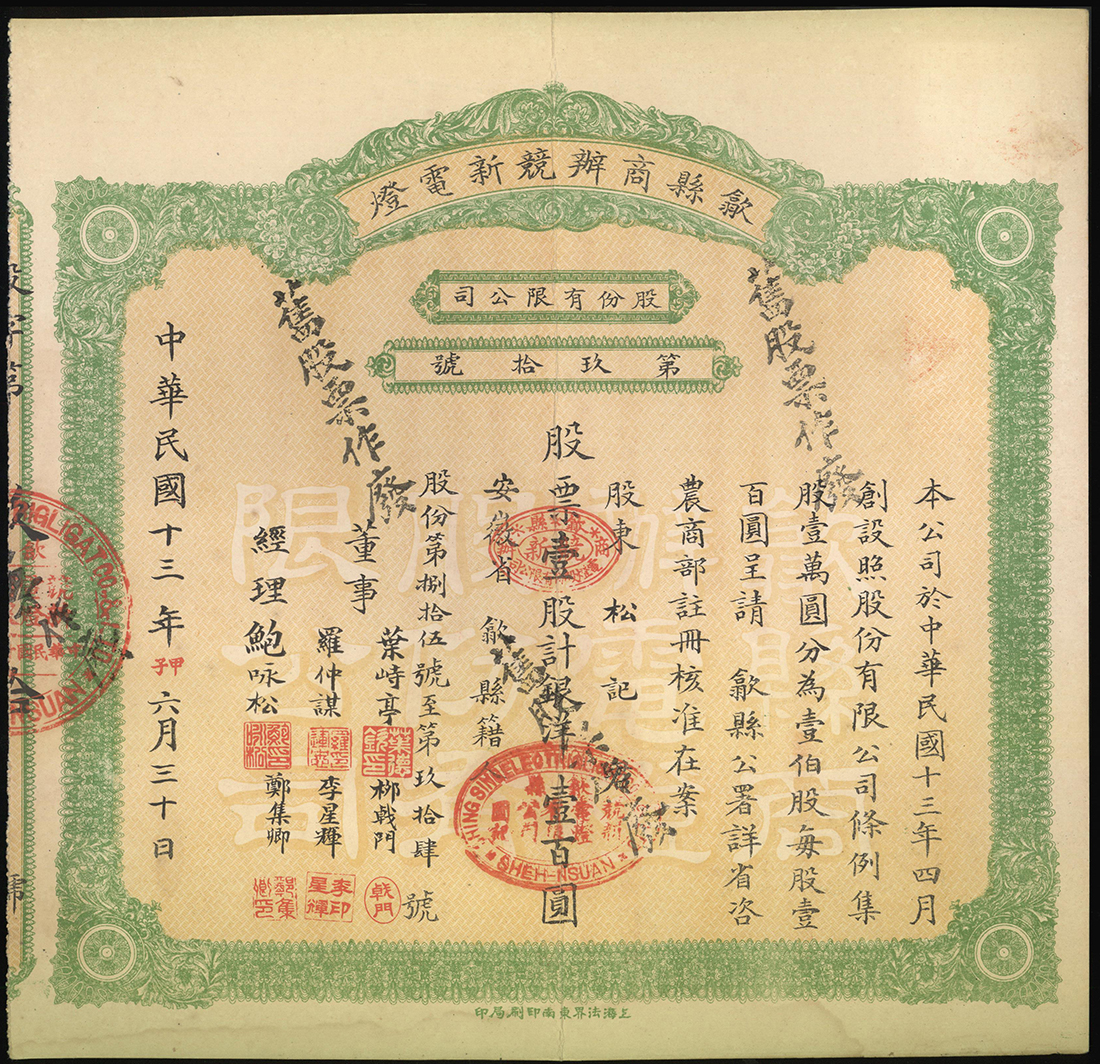 歙縣商辦競新電燈
股份有限公司
第玖拾號
本公司於中華民國十三年四月
創設照股份有限公司條例集
股壹萬圓分為壹伯股每股壹
百圓呈請 歙縣公署詳省咨
農商部註冊核准在案
股東 松記
股票壹股計銀洋壹百圓
安徽省 歙縣籍
股份第捌拾伍號至第玖拾肆號
董事
葉峙亭 柳戟門
羅仲謀 李星輝
經理 鮑咏松 鄭集卿
中華民國十三年甲子六月三十日
舊股票作廢
舊股票作廢
舊股票作廢
戟門
李印星輝
SHEH-HSUAN
上海法界東南印刷局印